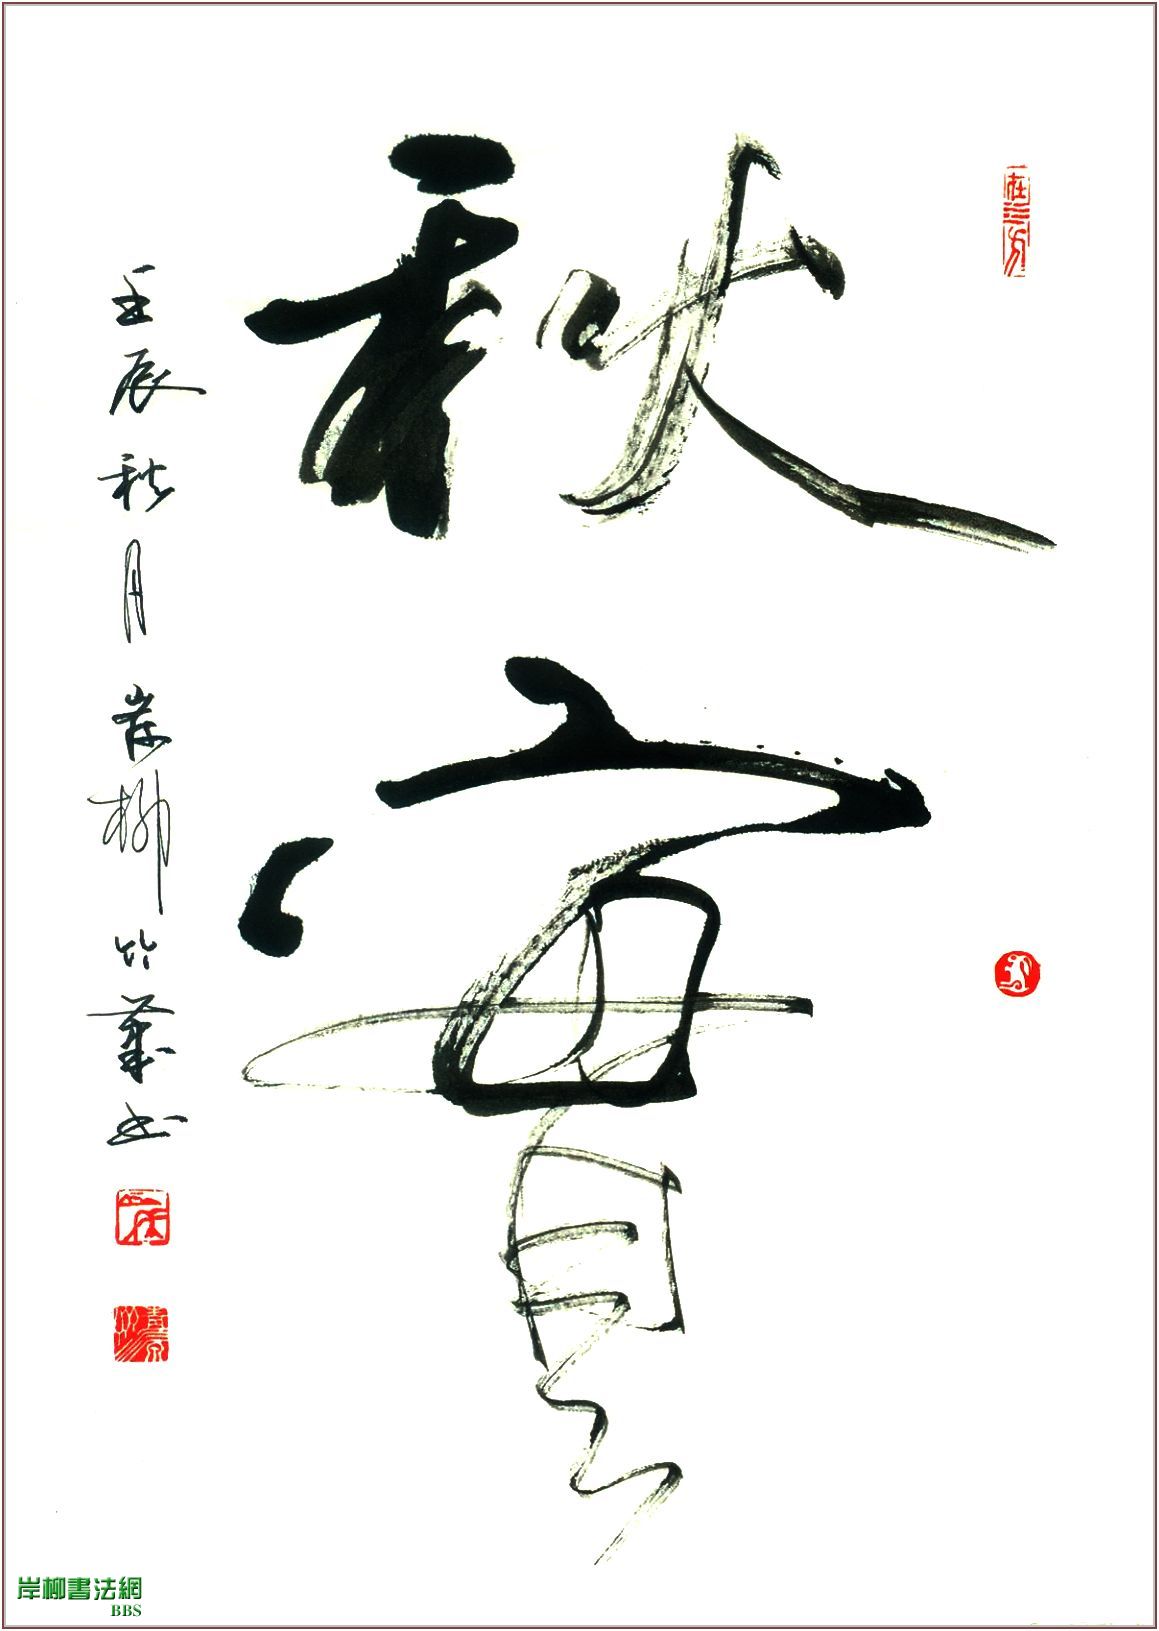 秋
實
壬辰秋月岸柳竹叢书
岸柳書法網
BBS